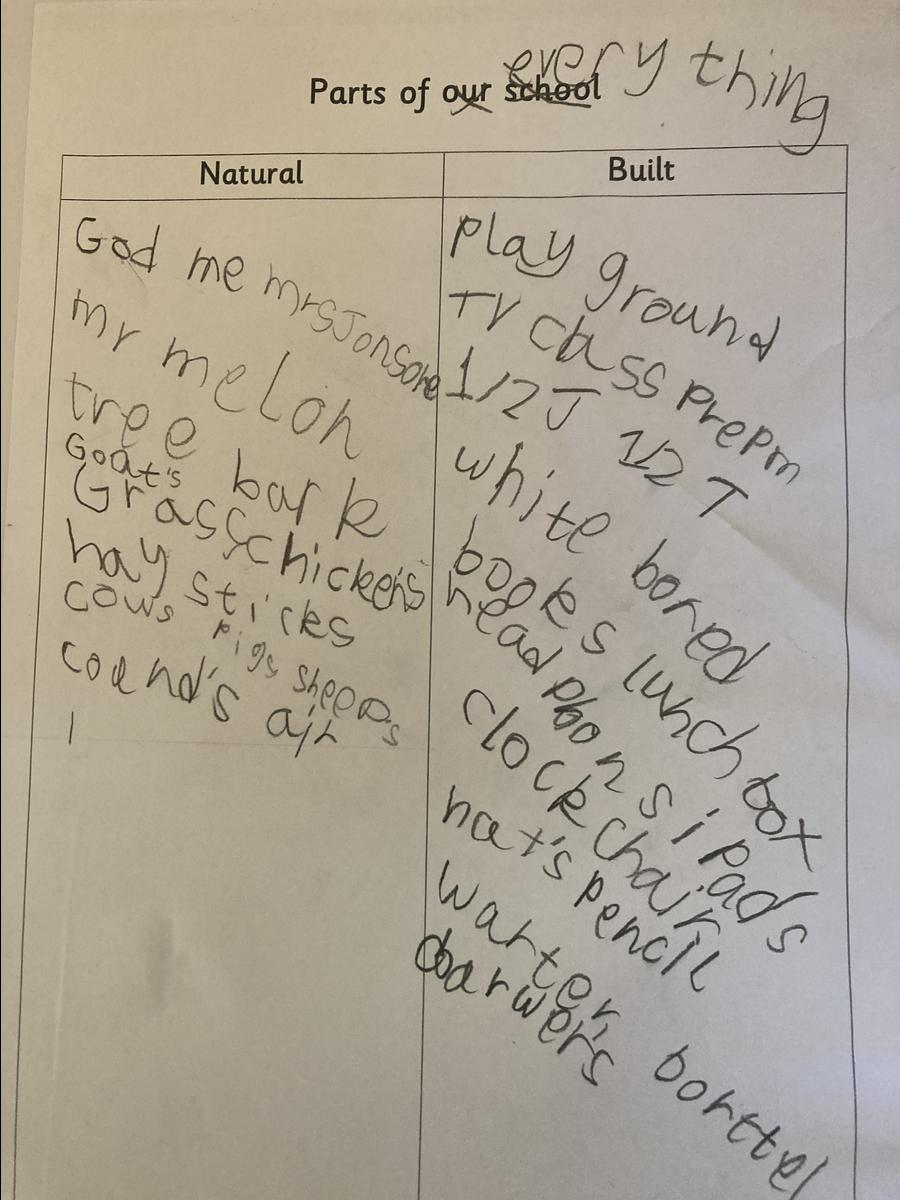 every thing
Parts of our school
Natural
God me mrs Jonsone
mr melon
tree bark
Goat's
Grass chickens
hay sticks
cows pigs sheep's
air
Built
Play ground
TV class Prepm
1/2 J 1/2 T
white bored
books lunch box
head phons ipads
clock chair
hat's pencil
warter borttel